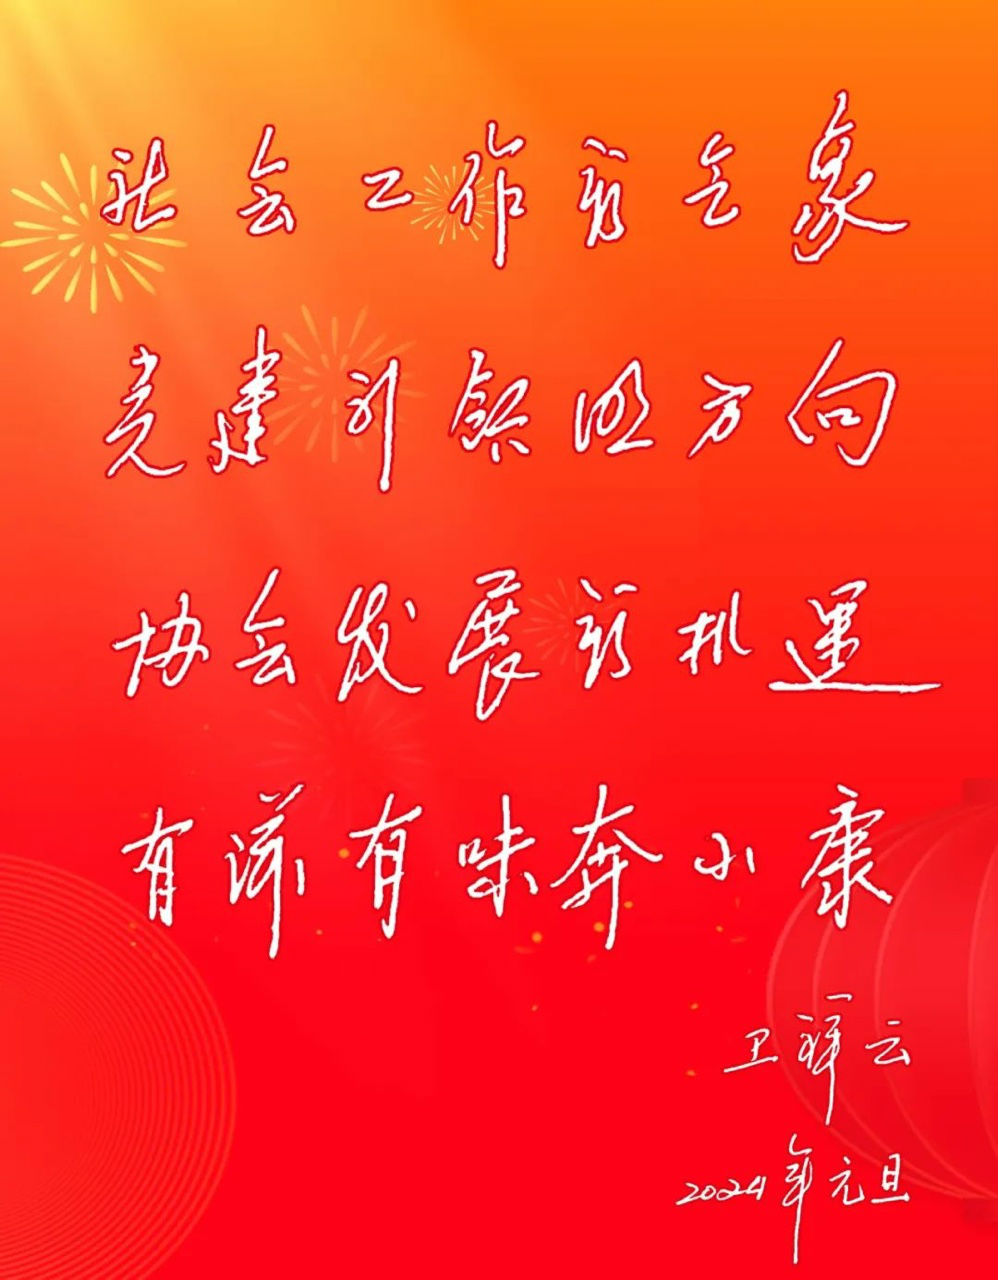 社会工作新气象
党建引领明方向
协会发展新机遇
有滋有味奔小康
卫祥云
2024年元旦